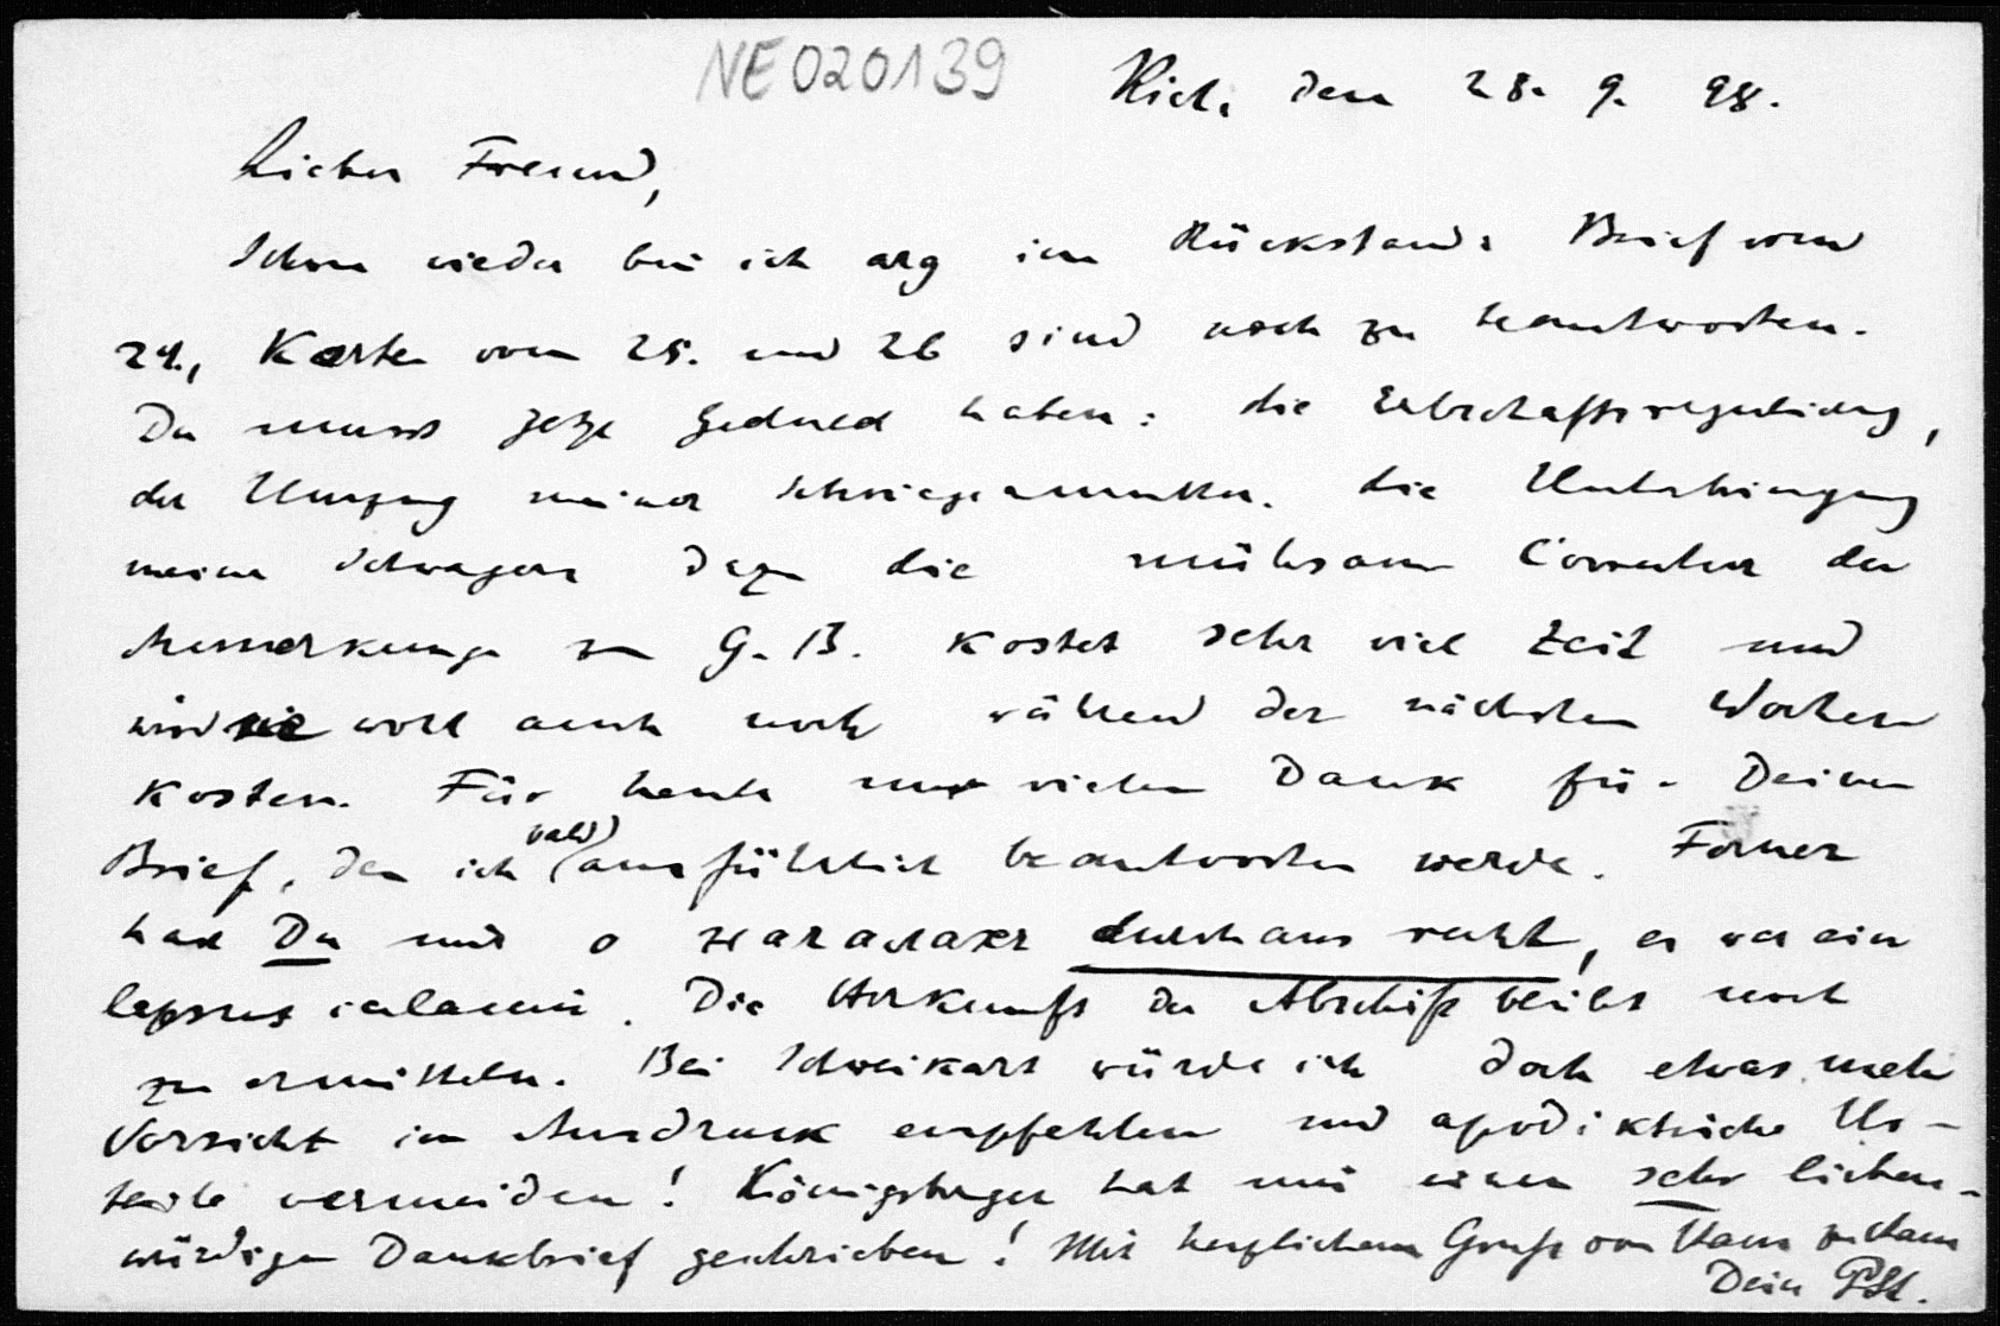 NE020139
Kiel, den 28. 9. 98.
Lieber Freund,
Schon wieder bin ich arg im Rückstand: Brief vom
24., Karten vom 25. und 26 sind noch zu beantworten.
Du musst jetzt Geduld haben: die Erbschaftsregulierung,
der Umzug meiner Schwiegermutter. die Unterbringung
meines Schwagers dazu die mühsame Correctur der
Anmerkungen zu G. B. kostet sehr viel Zeit und
wird sie wohl auch noch während der nächsten Wochen
kosten. Für heute nur vielen Dank für Deinen
Brief, den ich bald ausführlich beantworten werde. Ferner
hast Du mit durchaus recht, es war ein
lapsus calami. Die Herkunft der Abschrift bleibt noch
zu ermitteln. Bei Schweikart würde ich doch etwas mehr
Vorsicht im Ausdruck empfehlen und apodiktische Ur-
teile vermeiden! Königsberger hat mir einen sehr liebens-
würdigen Dankbrief geschrieben! Mit herzlichem Gruss von Haus zu Haus
Dein PSt.